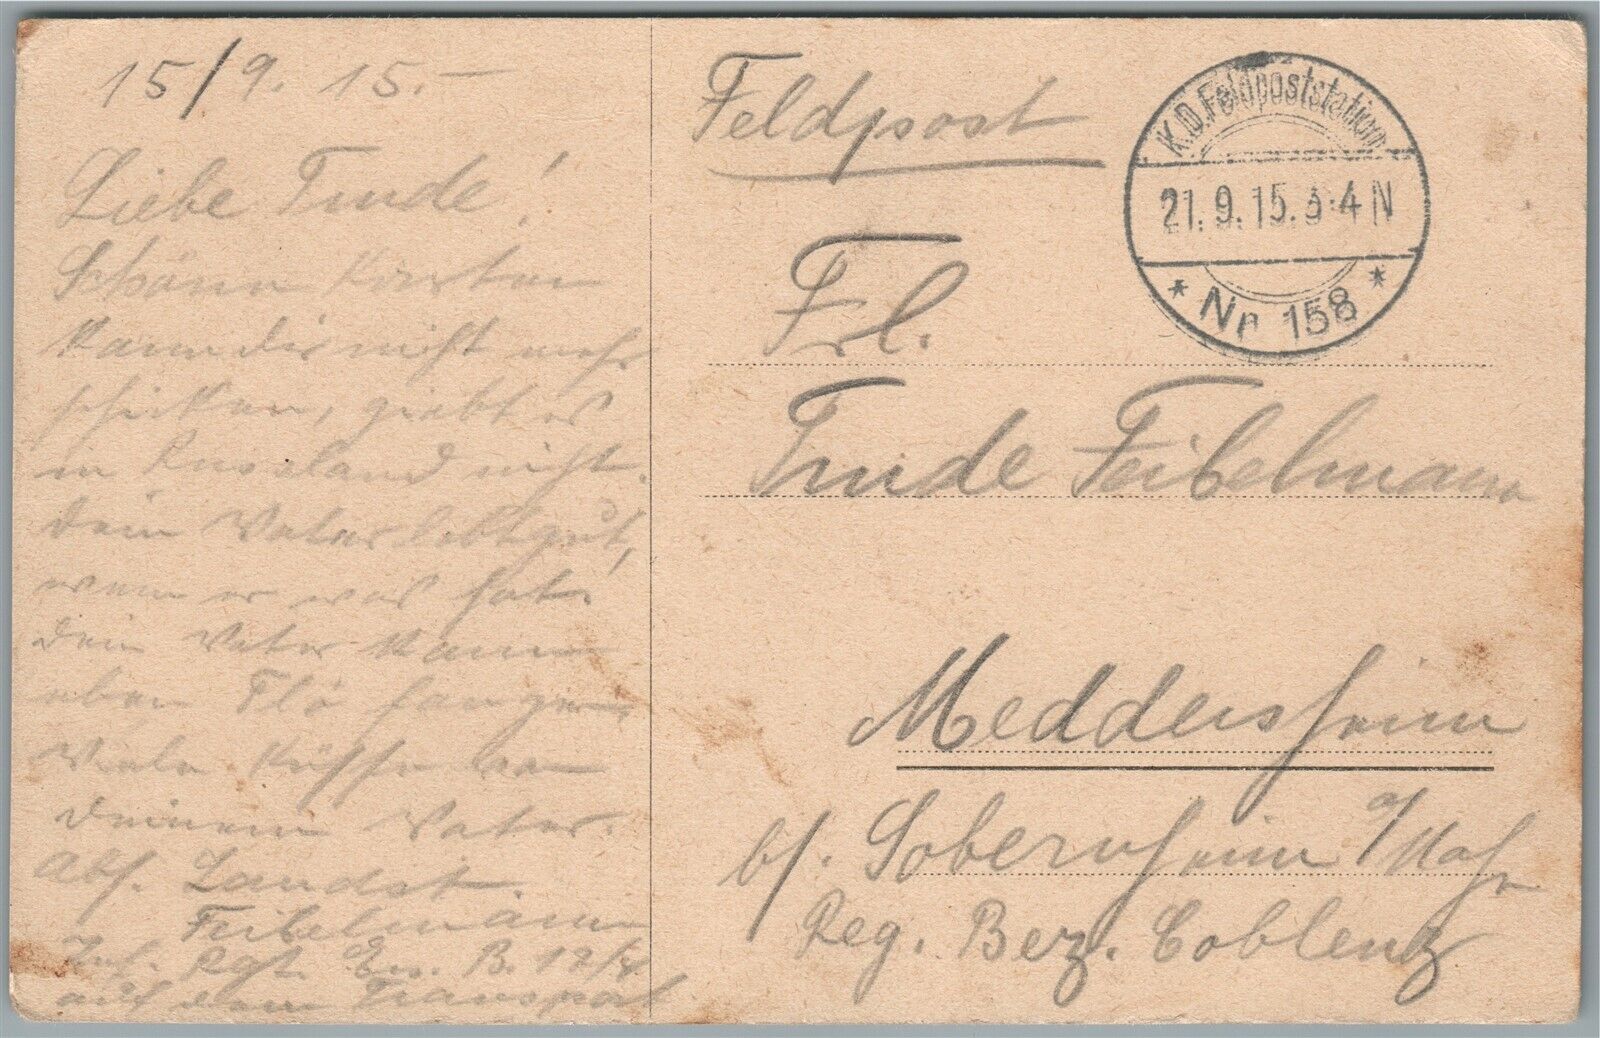 15/9. 15. –
Liebe Trude!
Schöne Karten
kann dir nicht mehr
schicken, giebt es
in Russland nicht.
dein Vater lebt gut,
wenn er was hat.
dein Vater kann
eben Flö fangen.
Viele Küsse von
deinem Vater.
Abs. Landst.
Feibelmann
Inf. Rgt. Ers. B.
auf dem Transport
Feldpost
K.D.Feldpoststation
21.9.15.3-4N
* Nr. 158 *
Frl.
Trude Feibelmann
Meddersheim
b/. Sobernheim a/Nahe
Reg. Bez. Coblenz